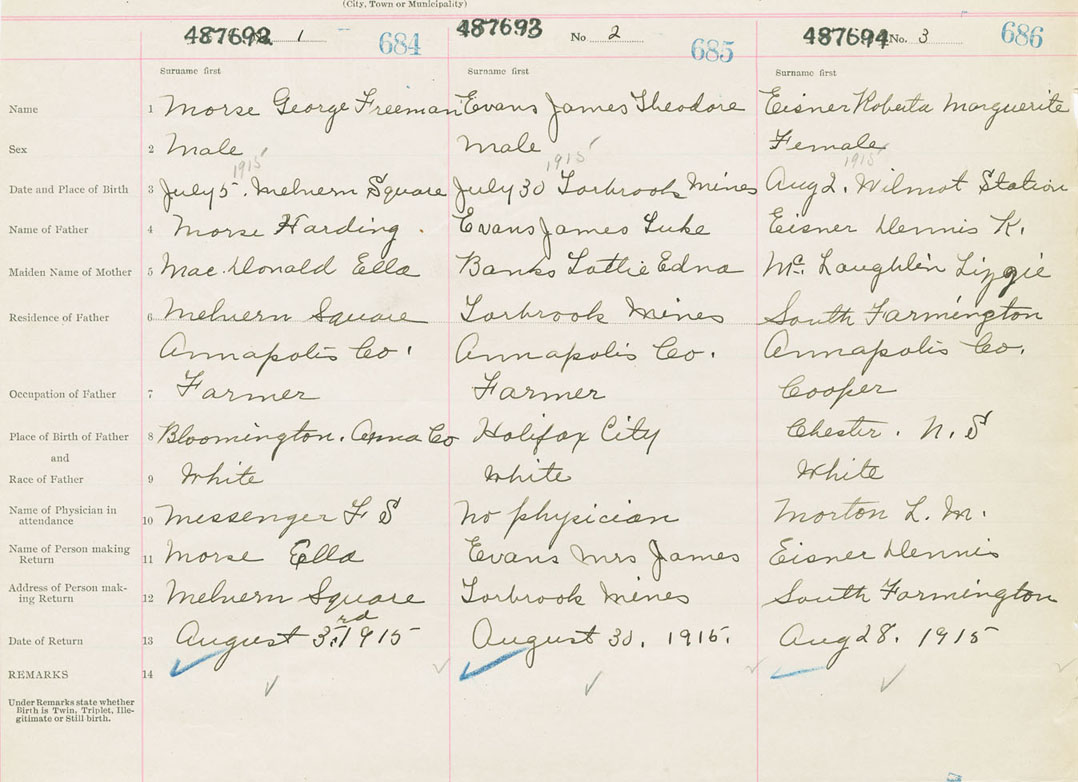 (City, Town or Municipality)
487692 1 684 487693 No 2 685 487694 No. 3 686
Surname first Surname first Surname first
Name 1 Morse George Freeman Evans James Theodore Eisner Roberta Marguerite
Sex 2 Male Male Female
1915 1915 1915
Date and Place of Birth 3 July 5. Melvern Square July 30 Torbrook Mines Aug 2. Wilmot Station
Name of Father 4 Morse Harding. Evans James Luke Eisner Dennis K.
Maiden Name of Mother 5 Mac Donald Ella Banks Lottie Edna Mc Laughlin Lizzie
Residence of Father 6 Melvern Square Torbrook Mines South Farmington
Annapolis Co. Annapolis Co. Annapolis Co.
Occupation of Father 7 Farmer Farmer Cooper
Place of Birth of Father 8 Bloomington. Anna Co Halifax City Chester. N. S
and
Race of Father 9 White White White
Name of Physician in attendance 10 Messenger F S No physician Morton L. M.
Name of Person making Return 11 Morse Ella Evans Mrs James Eisner Dennis
Address of Person mak-ing Return 12 Melvern Square Torbrook Mines South Farmington
Date of Return 13 August 3rd 1915 August 30. 1915. Aug 28. 1915
REMARKS 14
Under Remarks state whether
Birth is Twin, Triplet, Ille-
gitimate or Still birth.